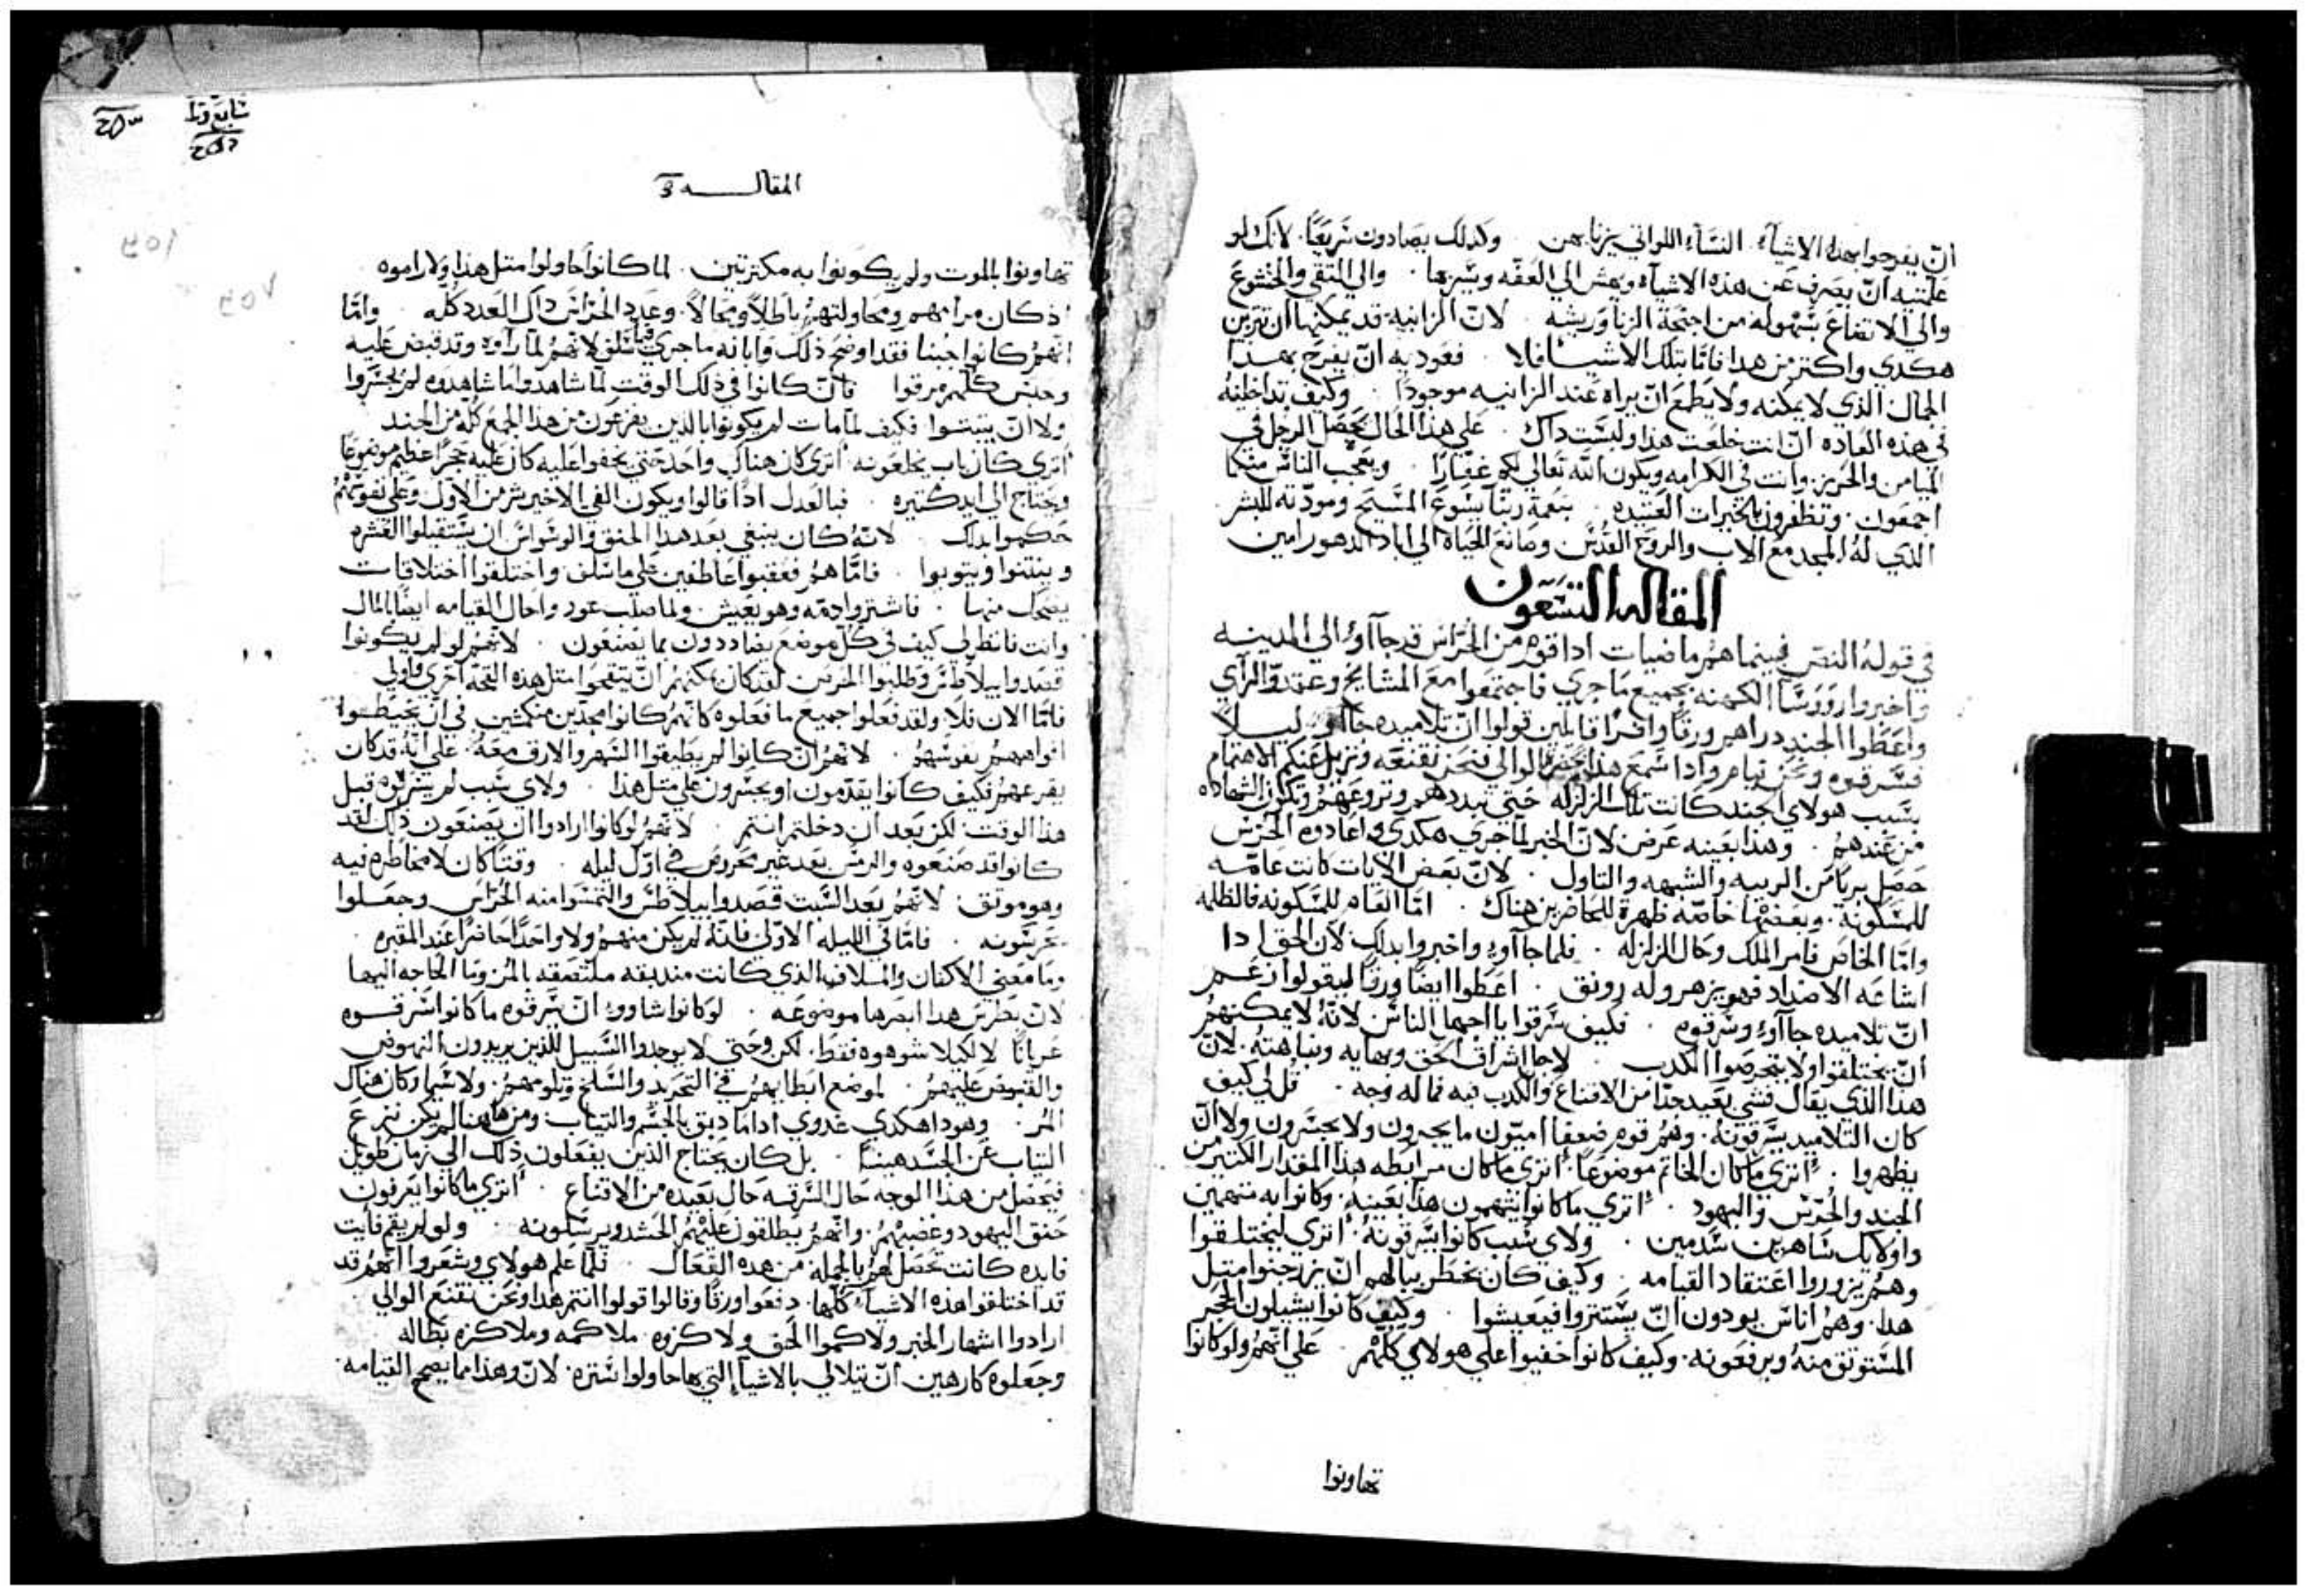 ان يفرحوا بهذه الاشيآء النسآء اللواتي يزنا بهن وكدلك يصادون سريعًا لانك لو
علمتيه ان يصرف عن هذه الاشيآء ويهش الي العفه وسيرها والي التقي والخشوع
والي الاتفاع بسهوله من اجنحة الزنا وريشه لان الزانيه قد يمكنها ان تتزين
هكدي واكتر من هدا فامّا بتلك الاشيآ فلا فعوديه ان يفرح بهدا
الجمال الذي لا يمكنه ولا يطمع ان يراه عند الزانيه موجودًا وكيف تداخلينه
في هذه العاده ان انت خلعت هذا ولبست داك علي هذا الحال يحصل الرجل في
الميامن والحريز وانت في الكرامه ويكون الله تعالي لكم غفارًا ويعجب الناس منكما
اجمعون وتظفرون بالخيرات العتيده بنعمة ربنا يسوع المسيح ومودته للبشر
الذي له المجد مع الاب والروح القدس وصانع الحياه الي اباد الدهور امين
المقاله التسعون
في قوله النص فبينما هم ماضيات ادا قوم من الحراس قد جآاوا الي المدينه
واخبروا روَوسآ الكهنه بجميع ما جري فاجتمعوا مع المشايخ وعقدو الراي
واعطوا الجند دراهم ورقًا وافرًا قايلين قولوا ان تلاميده جآاوا ليلاً
فسرقوه ونحن نيام وادا سمع هذا بحضرة الوالي فنحن نقنعه ونزيل عنكم الاهتمام
بسبب هولاي الجند كانت تلك الزلزله حتي تبددهم وتروعهم وتكون الشهاده
من عندهم وهذا بعينه عرض لان الخبر لما جري هكدي واعادوه الحرس
حصل بريا من الريبه والشبهه والتاول لان بعض الايات كانت عامّه
للمسكونه وبعضها خاصّه ظهرة للحاضرين هناك امّا العام للمسكونه فالظلمه
وامّا الخاص فامر الملك وحال الزلزله فلما جآاوا واخبروا بدلك لان الحق ادا
اشاعه الاضداد فهو يزهر وله رونق اعطوا ايضًا ورقًا ليقولوا زعم
ان تلاميده جآاوا وسرقوه فكيف سرقوا يا اجهل الناس لانه لا يمكنهم
ان يختلقوا ولا يتخرصوا الكدب لاجل اشراف الحق وبهايه ونباهته لان
هذا الذي يقال فشي بعيد جدًا من الاقناع والكدب فيه فما له وجه قل لي كيف
كان التلاميد يسرقونه وهم قوم ضعفا اميّون ما يجبرون ولا يجسرون ولا ان
يظهروا اتري ما كان الخاتم موضوعًا اتري ما كان مرابطه هذا المقدار الكتير من
الجند والحرس واليهود اتري ما كانوا يتهمون هذا بعينه وكانوا به متهمين
واولايك ساهرين سدمين ولاي سبب كانوا يسرقونه اتري ليختلقوا
وهم يزوروا اعتقاد القيامه وكيف كان يخطر ببالهم ان يزرجنوا متل
هدا وهم اناس يودون ان يستتروا فيعيشوا وكيف كانوا يشيلون الحجر
المستوتق منه ويرفعونه وكيف كانوا خفيوا علي هولاي كلهم علي انهم ولو كانوا
تهاونوا
المقاله
تهاونوا بالموت ولم يكونوا به مكترتين لما كانوا حاولوا متل هذا ولا راموه
اذ كان مرامهم ومحاولتهم باطلاً ومحالاً وعدد الحراس داك العدد كله وامّا
انهم كانوا جبنا فقد اوضح ذلك وابانه ما جري فيما سلف لانهم لما راوه وقد قبض عليه
وحبس كلهم مرقوا فان كانوا في ذلك الوقت لما شاهدوا ما شاهدوه لم يجسروا
ولا ان يتبتوا فكيف لما مات لم يكونوا بالدين يفزعون من هذا الجمع كله من الجند
اتري كان باب يخلعونه اتري كان هناك واحد حتي يخفوا عليه كان عليه حجرًا عظيم موضوعًا
ويحتاج الي ايد كتيره فبالعدل ادًا قالوا ويكون الغي الاخير شر من الاول وعلي نفوسهم
حكموا بدلك لانه كان ينبغي بعد هدا الحنق والوسواس ان يستقبلوا العشره
وينتنوا ويتوبوا فامّا هم فعقبوا عاطفين علي ما سلف واختلقوا اختلاقات
يضحك منها فاشتروا دمّه وهو يعيش ولما صلب عود واحال القيامه ايضًا بالمال
وانت فانظر لي كيف في كل موضع يضادون بما يصنعون لانهم لو لم يكونوا
قصدوا بيلاطس وطلبوا الحرس لقد كان يمكنهم ان يتقحوا متل هذه القحه احري واولي
فامّا الان فلا ولقد فعلوا جميع ما فعلوه كانهم كانوا مجدين منكمشين في ان يخيطوا
افواههم بنفوسهم لانهم ان كانوا لم يطيقوا السهر والارق معه علي انه قد كان
يقرعهم فكيف كانوا يقدمون او يجسرون علي متل هذا ولاي سبب لم يسرقوه قبل
هذا الوقت لكن بعد ان دخلتم انتم لانهم لو كانوا ارادوا ان يصنعون ذلك لقد
كانوا قد صنعوه والرمس بعد غير محروس في اول ليله وقتًا كان لا مخاطره فيه
وهو موتق لانهم بعد السبت قصدوا بيلاطس والتمسوا منه الحراس وجعلوا
يحرسونه فامّا في الليله الاولي فانه لم يكن منهم ولا واحدًا حاضرًا عند المقبره
وما معني الاكفان والسلاف الذي كانت مندبقه ملتصقه بالمر وما الحاجه اليها
لان بطرس هدا ابصرها موضوعه لو كانوا شاووا ان سرقوه ما كانوا سرقوه
عريانًا لا لكيلا شوهوه فقط لكن وحتي لا يوجدوا السبيل للذين يريدون النهوض
والقبوض عليهم لموضع ابطايهم في التجريد والسلخ وتلومهم ولا سيما وكان هناك
المر وهو دا هكدي غدوي ادا ما دبق بالجسم والتياب ومن هاهنا لم يكن نزع
التياب عن الجسد هينًا بل كان يحتاج الذين يفعلون ذلك الي زمان طويل
فيحصل من هذا الوجه حال السرقه حال بعيده من الاقناع اتري ما كانوا يعرفون
حنق اليهود وغضبهم وانهم يطلقون عليهم الحسد ويرسلونه ولو لم يقم فايت
فايده كانت تحصل لهم بالجمله من هده الفعال فلما علم هولاي وشعروا انهم قد
قد اختلقوا هذه الاشيآء كلها دفعوا ورقًا وقالوا قولوا انتم هدا ونحن نقنع الوالي
ارادوا اشهار الخبر ولاكموا الحق ولاكزوه ملاكمه وملاكزه بطاله
وجعلوه كارهين ان يتلالي بالاشيا التي بها حاولوا ستره لان وهذا مما يصحح القيامه